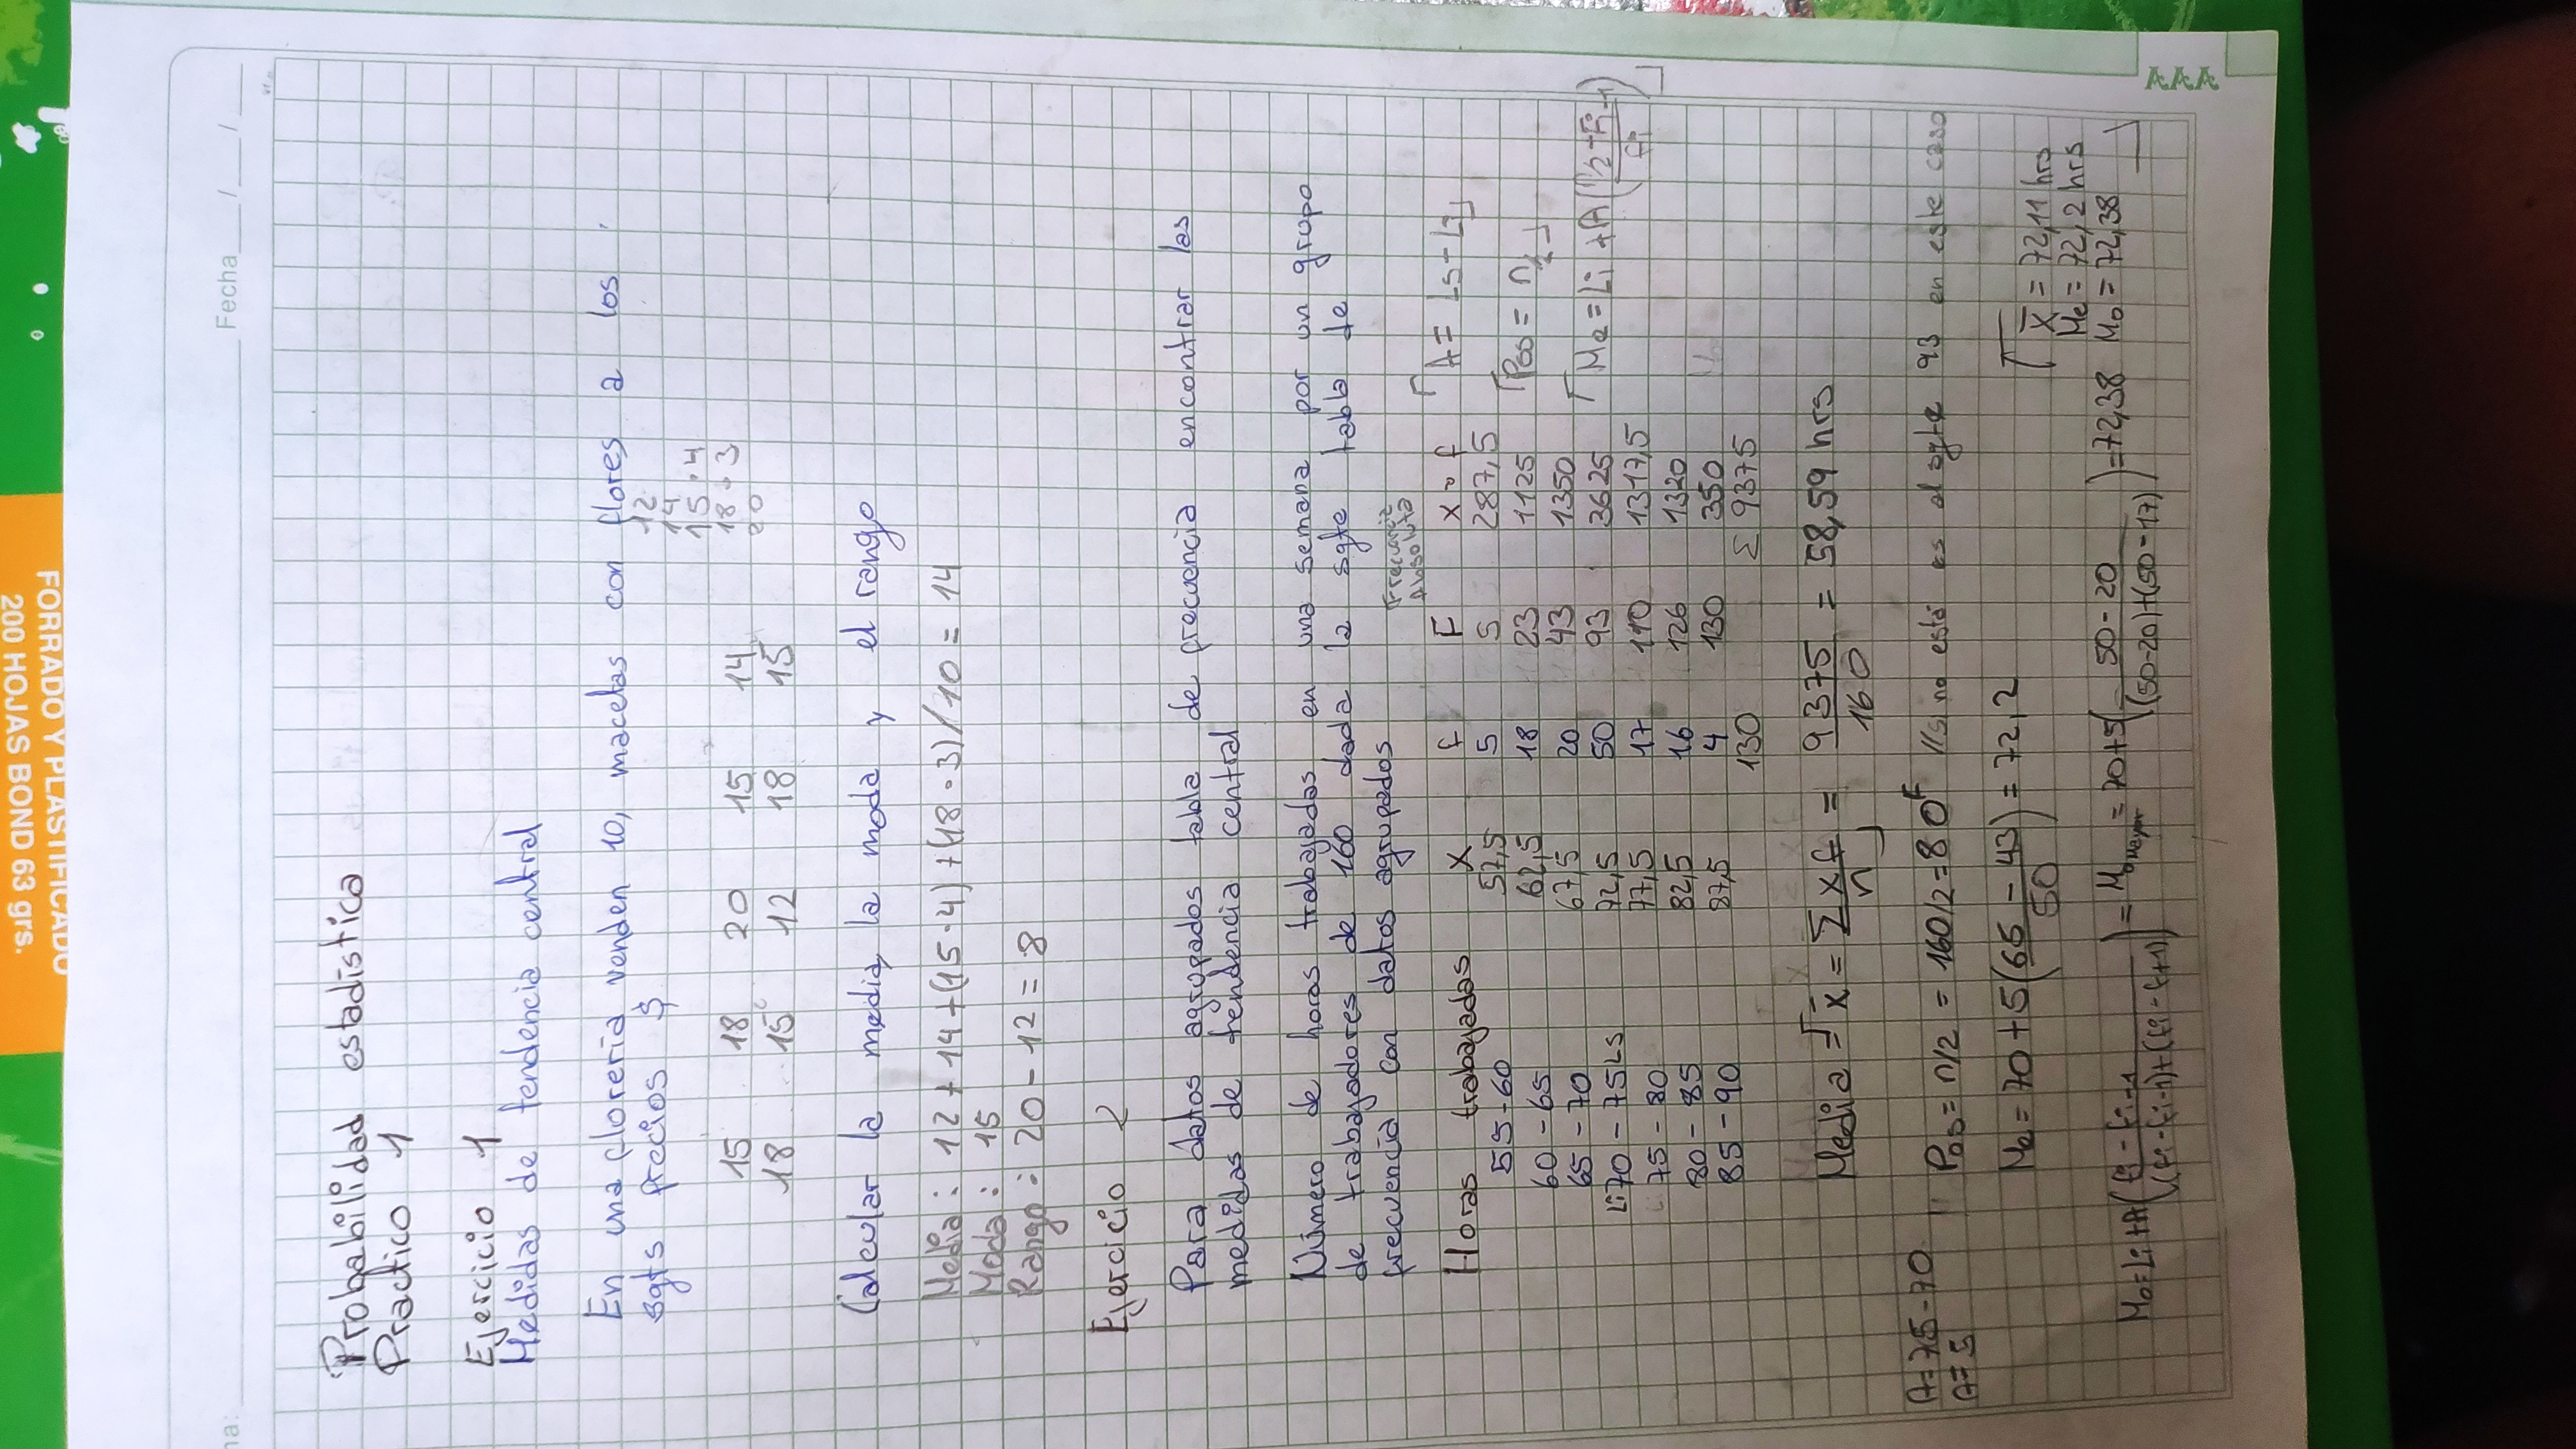 200 HOJAS BOND 63 grs.
FORRADO Y PLASTIFICADO
na:
Fecha / /
Probabilidad estadistica
Practico 1
Ejercicio 1
Medidas de tendencia central
En una floreria venden 10, macetas con flores a los
sgts precios $
12
14
15 · 4
18 · 3
20
15 18 20 15 14
18 15 12 18 15
Calcular la media, la moda y el rango
Media: 12 + 14 + (15 · 4) + (18 · 3) / 10 = 14
Moda: 15
Rango: 20 - 12 = 8
Ejercicio 2
Para datos agrupados tabla de frecuencia encontrar las
medidas de tendencia central
Número de horas trabajadas en una semana por un grupo
de trabajadores de 160 dada la sgte tabla de
frecuencia con datos agrupados
Frecuencia
Absoluta
Horas trabajadas X f F X · f A = Ls - Li
55 - 60 57,5 5 5 287,5
60 - 65 62,5 18 23 1125 Pos = n/2
65 - 70 67,5 20 43 1350
Li 70 - 75 Ls 72,5 50 93 3625 Me = Li + A (n/2 - Fi-1 / fi)
75 - 80 77,5 17 110 1317,5
80 - 85 82,5 16 126 1320
85 - 90 87,5 4 130 350
130 Σ 9375
Media = x̄ = Σxf / n = 9375 / 160 = 58,59 hrs
A = 75 - 70
A = 5
Pos = n/2 = 160/2 = 80 F //si no está es el sgte 93 en este caso
Me = 70 + 5 (65 - 43 / 50) = 72,2
x̄ = 72,11 hrs
Me = 72,2 hrs
Mo = 72,38
Mo = Li + A (fi - fi-1 / (fi - fi-1) + (fi - f+1)) = Mo mayor = 70 + 5 (50 - 20 / (50 - 20) + (50 - 17)) = 72,38